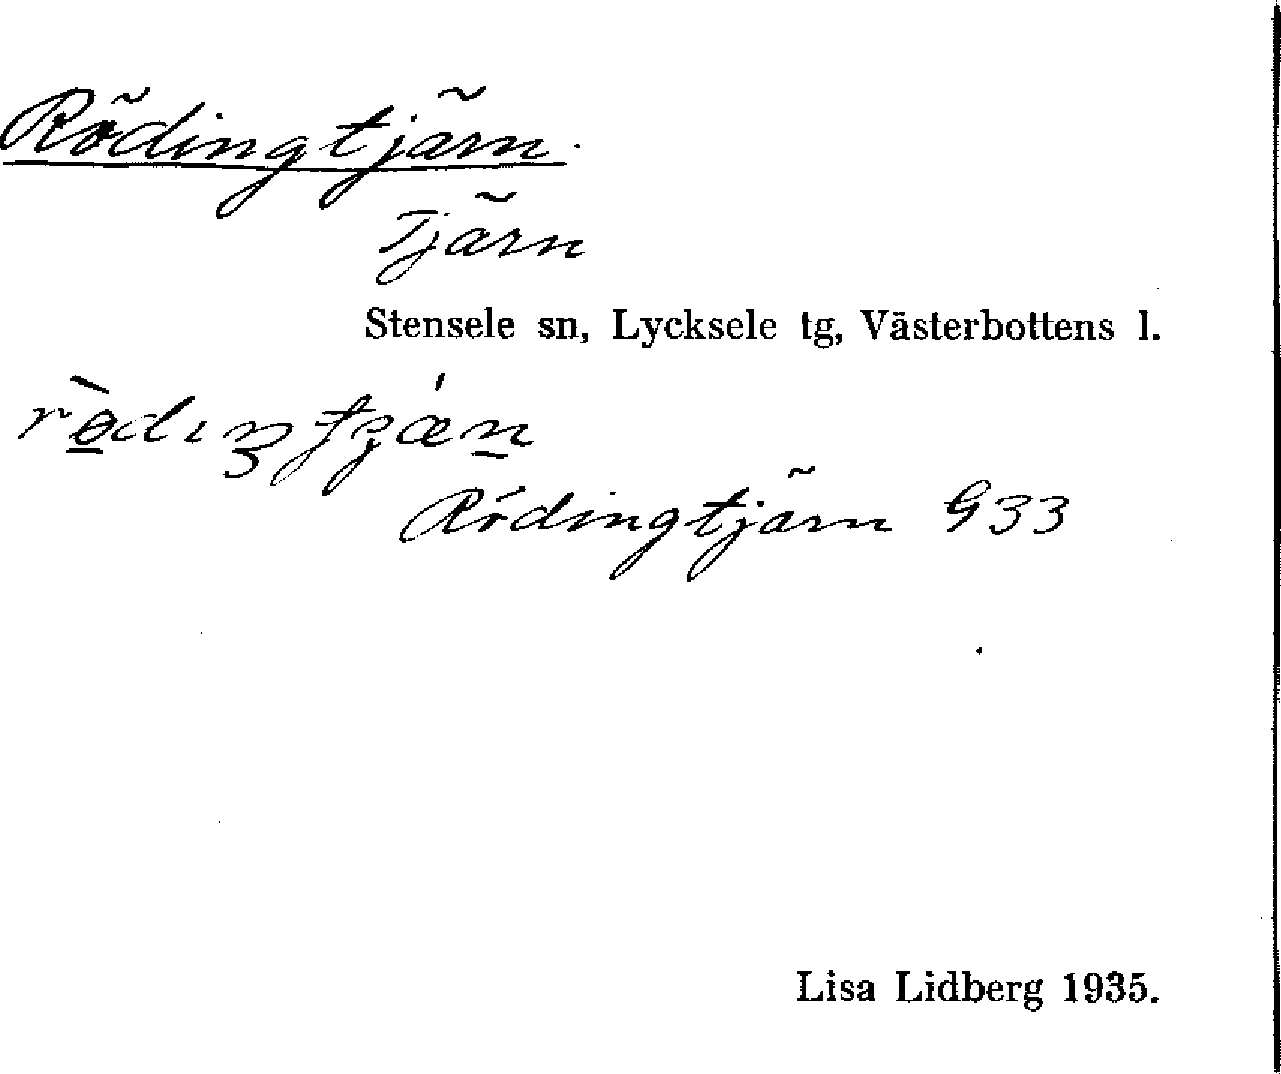 Rödingtjärn.
Tjärn
Stensele sn, Lycksele tg, Västerbottens l.
Rödingtjärn G33
Lisa Lidberg 1935.